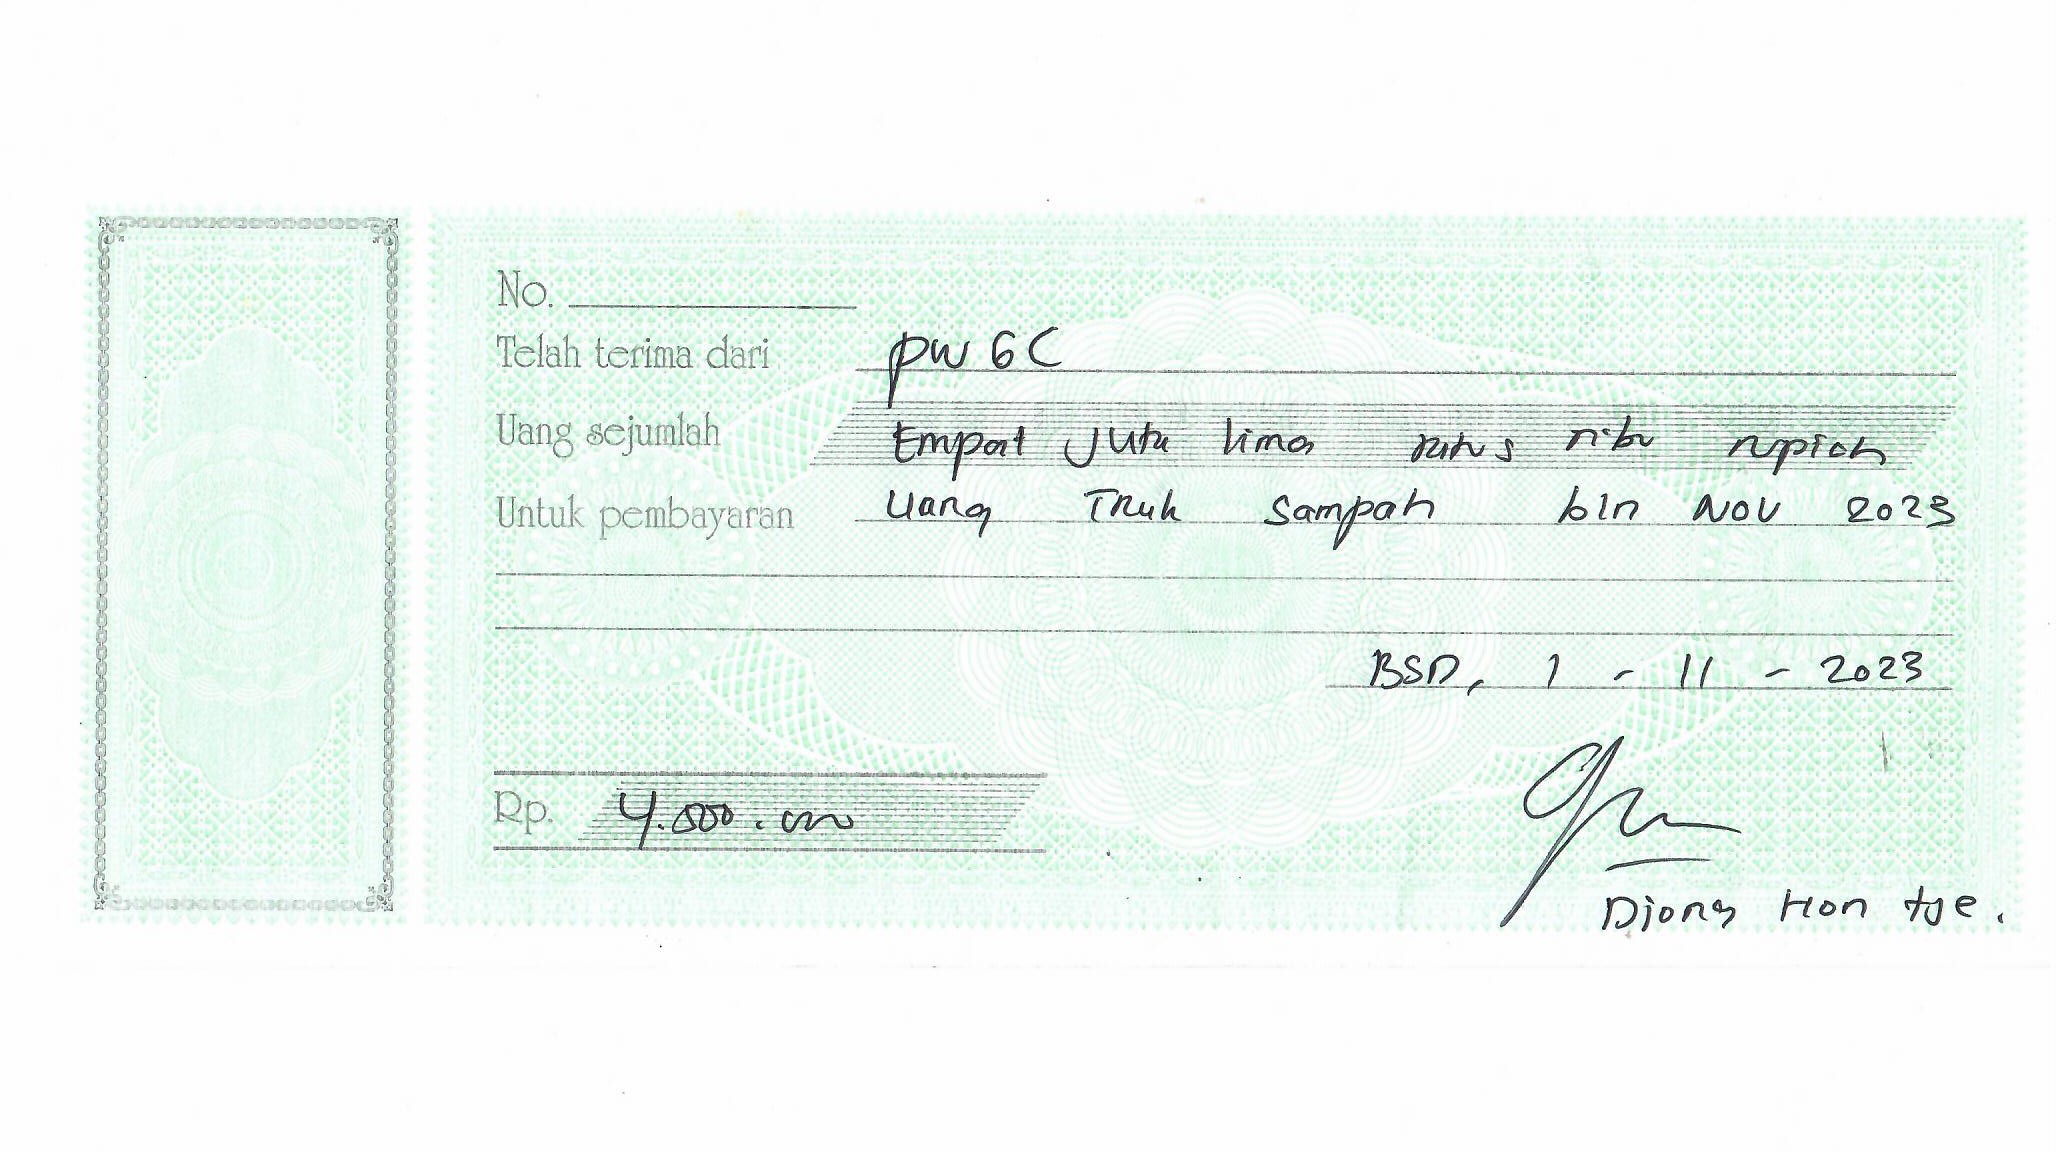 No.
Telah terima dari PW 6C
Uang sejumlah Empat Juta lima ratus ribu rupiah
Untuk pembayaran Uang Truk Sampah bln Nov 2023
BSD, 1 - 11 - 2023
Rp. 4.500.000
Djong Hon Tje.